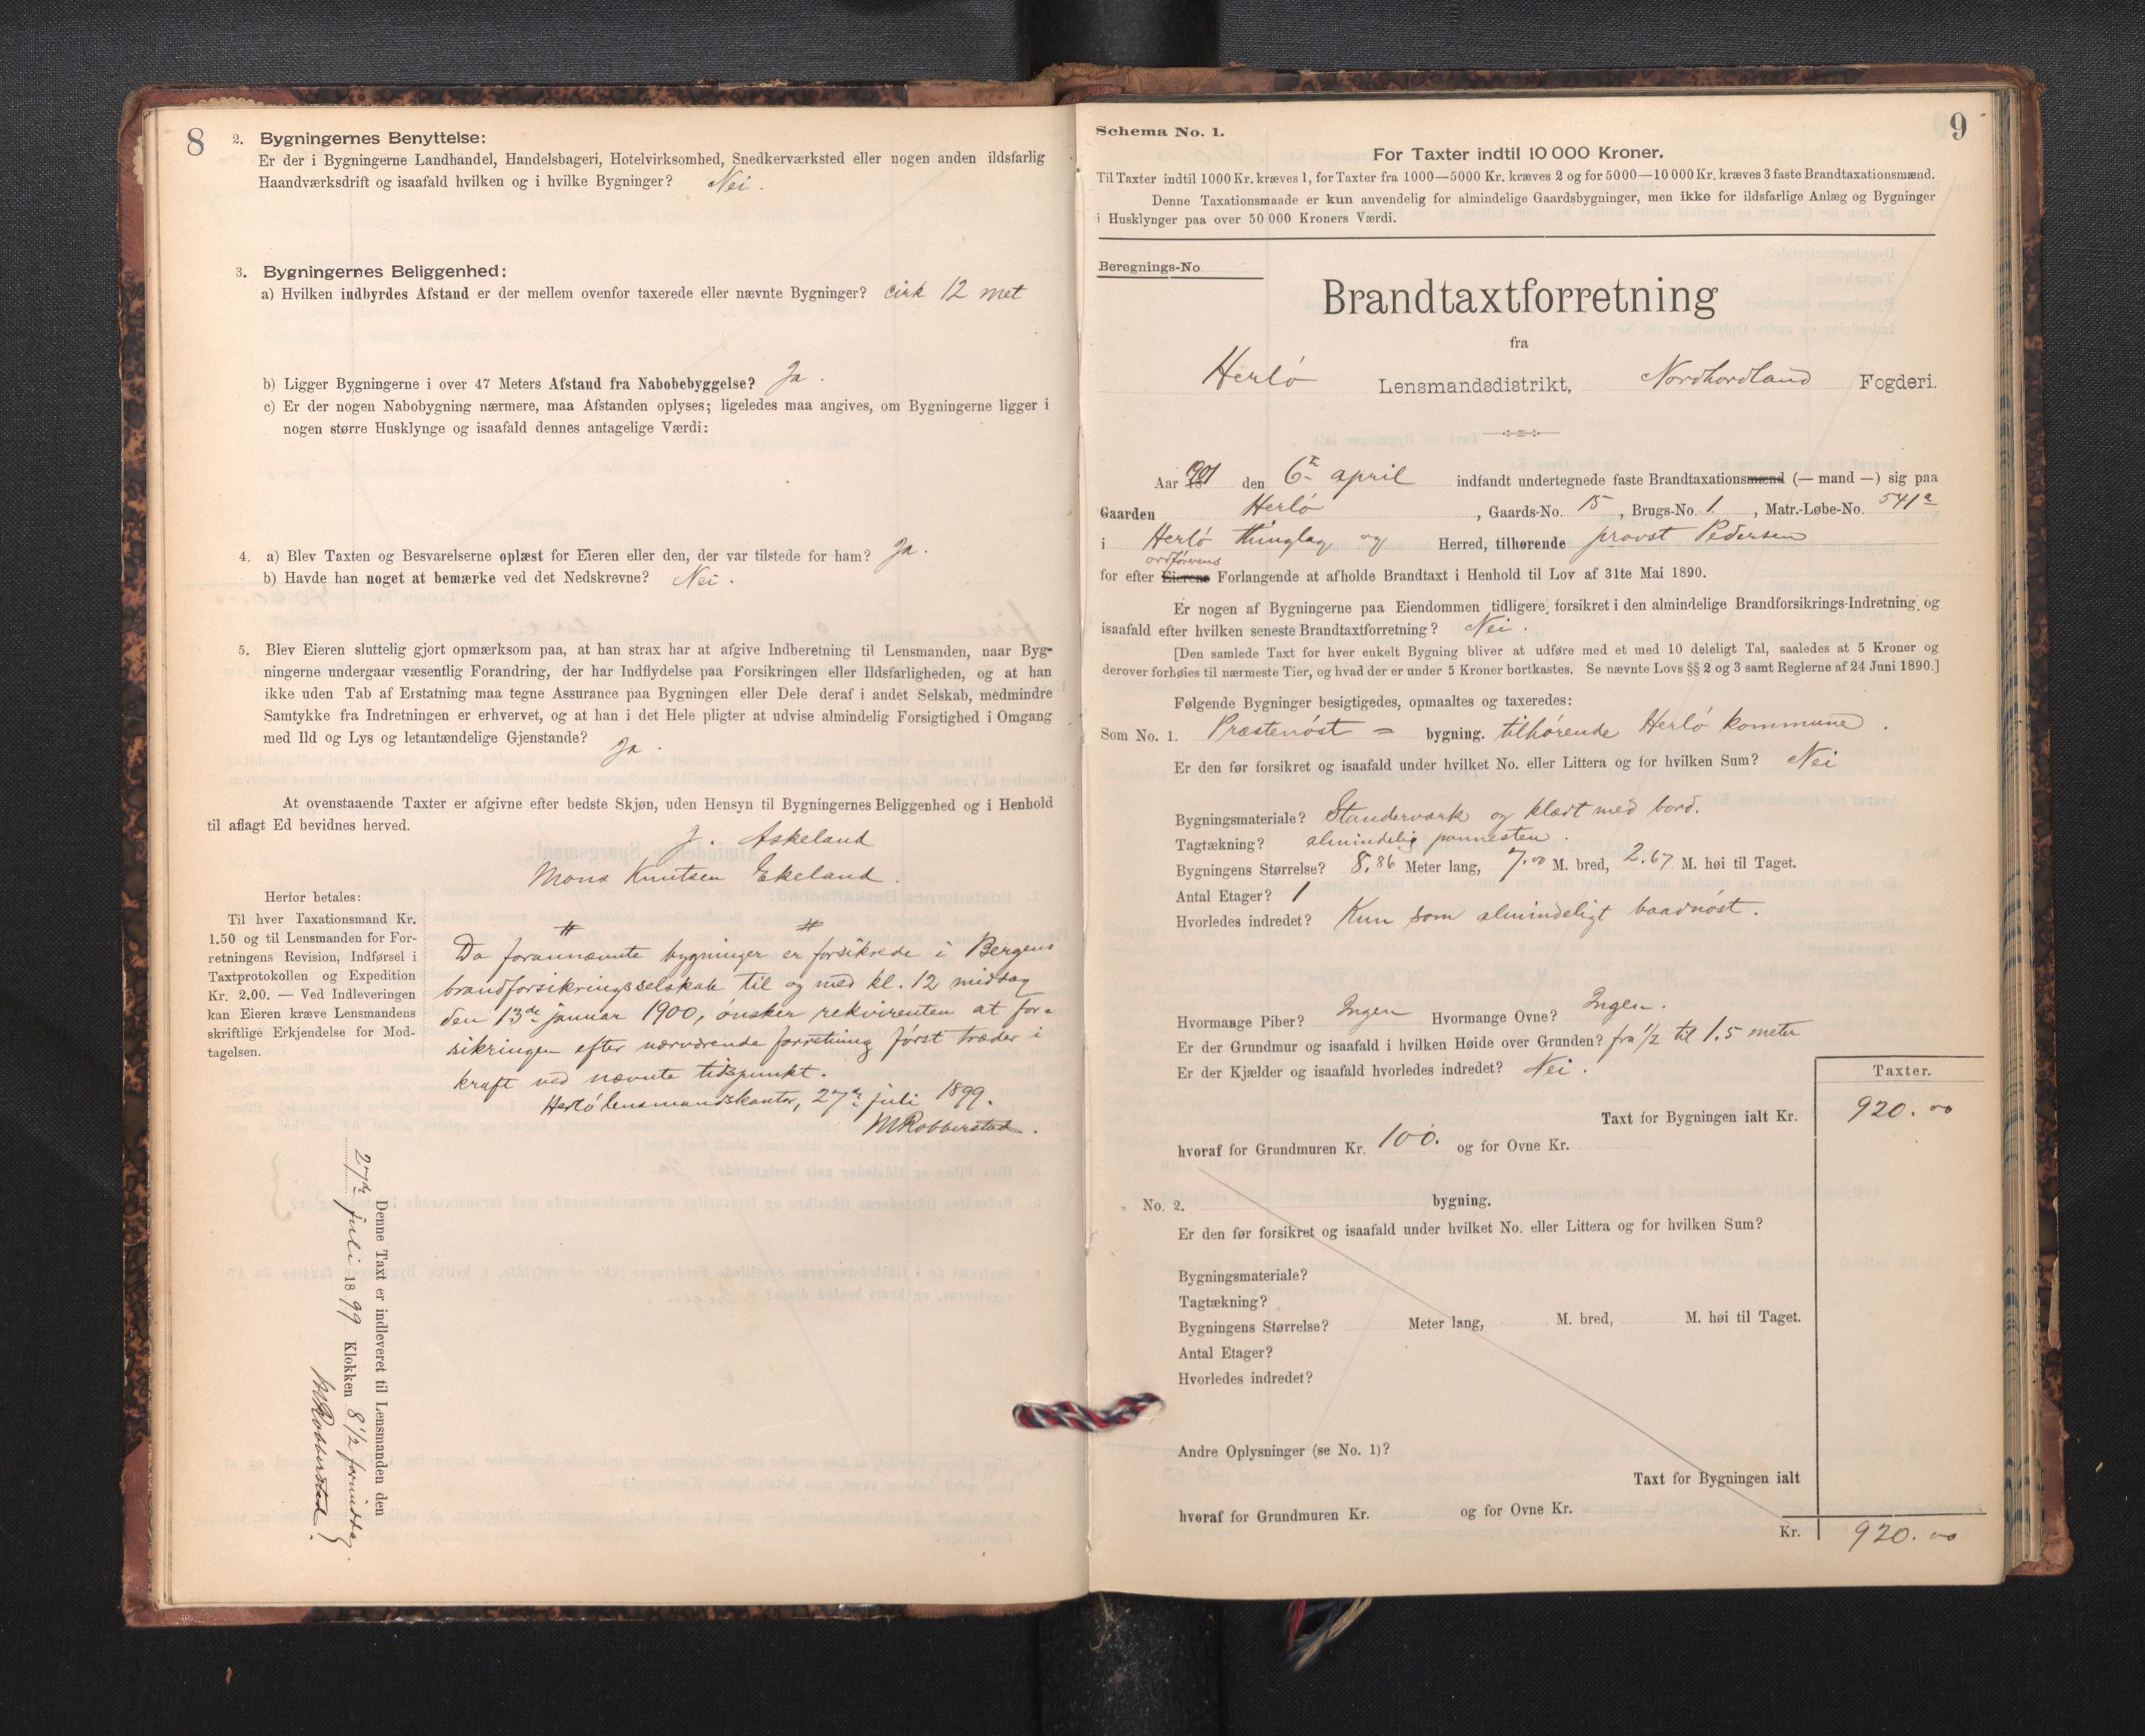 8
2. Bygningernes Benyttelse:
Er der i Bygningerne Landhandel, Handelsbageri, Hotelvirksomhed, Snedkerværksted eller nogen anden ildsfarlig
Haandværksdrift og isaafald hvilken og i hvilke Bygninger? Nei.
3. Bygningernes Beliggenhed:
a) Hvilken indbyrdes Afstand er der mellem ovenfor taxerede eller nævnte Bygninger? cirk 12 met
b) Ligger Bygningerne i over 47 Meters Afstand fra Nabobebyggelse? Ja.
c) Er der nogen Nabobygning nærmere, maa Afstanden oplyses; ligeledes maa angives, om Bygningerne ligger i
nogen større Husklynge og isaafald dennes antagelige Værdi:
4. a) Blev Taxten og Besvarelserne oplæst for Eieren eller den, der var tilstede for ham? Ja.
b) Havde han noget at bemærke ved det Nedskrevne? Nei.
5. Blev Eieren sluttelig gjort opmærksom paa, at han strax har at afgive Indberetning til Lensmanden, naar Byg-
ningerne undergaar væsentlig Forandring, der har Indflydelse paa Forsikringen eller Ildsfarligheden, og at han
ikke uden Tab af Erstatning maa tegne Assurance paa Bygningen eller Dele deraf i andet Selskab, medmindre
Samtykke fra Indretningen er erhvervet, og at han i det Hele pligter at udvise almindelig Forsigtighed i Omgang
med Ild og Lys og letantændelige Gjenstande? Ja.
At ovenstaaende Taxter er afgivne efter bedste Skjøn, uden Hensyn til Bygningernes Beliggenhed og i Henhold
til aflagt Ed bevidnes herved.
J. Askeland
Mons Knutsen Ekeland.
Herfor betales:
Til hver Taxationsmand Kr.
1.50 og til Lensmanden for For-
retningens Revision, Indførsel i
Taxtprotokollen og Expedition
Kr. 2.00. — Ved Indleveringen
kan Eieren kræve Lensmandens
skriftlige Erkjendelse for Mod-
tagelsen.
Da forannævnte bygninger er forsikrede i Bergens
brandforsikringsselskab til og med kl. 12 middag
den 13de januar 1900, ønsker rekvirenten at for-
sikringen efter nærværende forretning først træder i
kraft ved nævnte tidspunkt.
Herlø lensmandskontor, 27de juli 1899.
MRobberstad.
Denne Taxt er indleveret til Lensmanden den
27de juli 1899 Klokken 8 1/2 formiddag.
MRobberstad.
9
Schema No. 1.
For Taxter indtil 10 000 Kroner.
Til Taxter indtil 1000 Kr. kræves 1, for Taxter fra 1000—5000 Kr. kræves 2 og for 5000—10 000 Kr. kræves 3 faste Brandtaxationsmænd.
Denne Taxationsmaade er kun anvendelig for almindelige Gaardsbygninger, men ikke for ildsfarlige Anlæg og Bygninger
i Husklynger paa over 50 000 Kroners Værdi.
Beregnings-No.
Brandtaxtforretning
fra
Herlö Lensmandsdistrikt, Nordhordland Fogderi.
Aar 1901 den 6te april indfandt undertegnede faste Brandtaxationsmænd (— mand —) sig paa
Gaarden Herlö, Gaards-No. 15, Brugs-No. 1, Matr.-Løbe-No. 541a
i Herlö thinglag og Herred, tilhørende provst Pedersen
ordførerens
for efter Eierens Forlangende at afholde Brandtaxt i Henhold til Lov af 31te Mai 1890.
Er nogen af Bygningerne paa Eiendommen tidligere forsikret i den almindelige Brandforsikrings-Indretning og
isaafald efter hvilken seneste Brandtaxtforretning? Nei.
[Den samlede Taxt for hver enkelt Bygning bliver at udføre med et med 10 deleligt Tal, saaledes at 5 Kroner og
derover forhøies til nærmeste Tier, og hvad der er under 5 Kroner bortkastes. Se nævnte Lovs §§ 2 og 3 samt Reglerne af 24 Juni 1890.]
Følgende Bygninger besigtigedes, opmaaltes og taxeredes:
Som No. 1. Præstenöst = bygning. tilhörende Herlö kommune.
Er den før forsikret og isaafald under hvilket No. eller Littera og for hvilken Sum? Nei
Bygningsmateriale? Standerværk og klædt med bord.
Tagtækning? almindelig pannesten.
Bygningens Størrelse? 8,86 Meter lang, 7.00 M. bred, 2.67 M. høi til Taget.
Antal Etager? 1
Hvorledes indredet? Kun som almindeligt baadnöst.
Hvormange Piber? Ingen Hvormange Ovne? Ingen.
Er der Grundmur og isaafald i hvilken Høide over Grunden? fra 1/2 til 1.5 meter
Er der Kjælder og isaafald hvorledes indredet? Nei.
Taxter.
Taxt for Bygningen ialt Kr. 920.00
hvoraf for Grundmuren Kr. 100. og for Ovne Kr.
" No. 2. bygning.
Er den før forsikret og isaafald under hvilket No. eller Littera og for hvilken Sum?
Bygningsmateriale?
Tagtækning?
Bygningens Størrelse? Meter lang, M. bred, M. høi til Taget.
Antal Etager?
Hvorledes indredet?
Andre Oplysninger (se No. 1)?
Taxt for Bygningen ialt
hvoraf for Grundmuren Kr. og for Ovne Kr.
Kr. 920.00